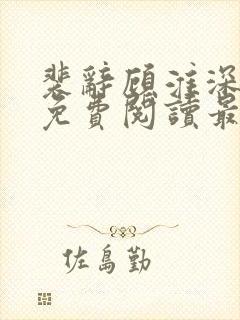 裴辭顧淮深
免費閱讀最
佐島勤